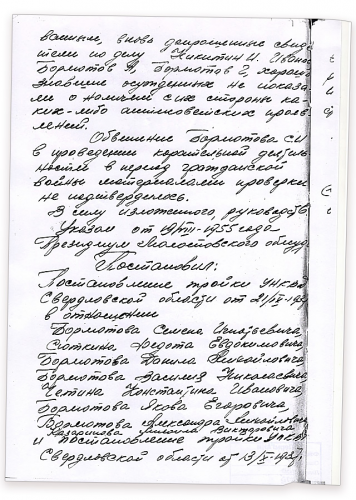 вание, вновь допрошенные свиде
тели по делу Никитин И. Иванов
Бормотов Я, Бормотов Г, хорошо
знавшие осужденных не показа
ли о наличии с их стороны ка-
ких-либо антисоветских прояв
лений.
Обвинение Бормотова СИ
в проведении карательной деятель
ностей в период гражданской
войны материалами проверки
не подтвердилось.
В силу изложенного, руководств.
Указом от 19/VIII-1955 года
Президиум Свердловского облсуда
Постановил:
Постановление тройки УНКВД
Свердловской области от 21/IX-193
в отношении
Бормотова Семена Игнатьевича,
Сюткина Федота Евдокимовича
Бормотова Данила Михайловича
Бормотова Василия Николаевича
Четина Константина Ивановича,
Бормотова Якова Егоровича,
Бормотова Александра Михайловича
Казаринова Михаила Викторовича
и постановление тройки УНКВД
Свердловской области от 13/X-1937г.